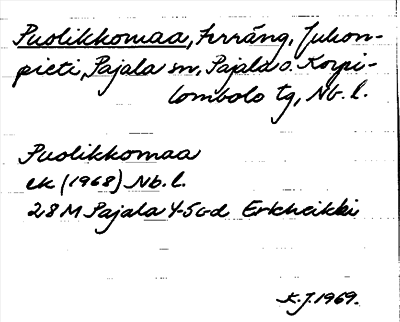 Puolikkomaa, terräng, Juhon-
pieti, Pajala sn, Pajala o. Korpi-
lombolo tg, Nb. l.
Puolikkomaa
ek (1968) Nb. l.
28 M Pajala 4-5 c-d Erkheikki
K.J. 1969.